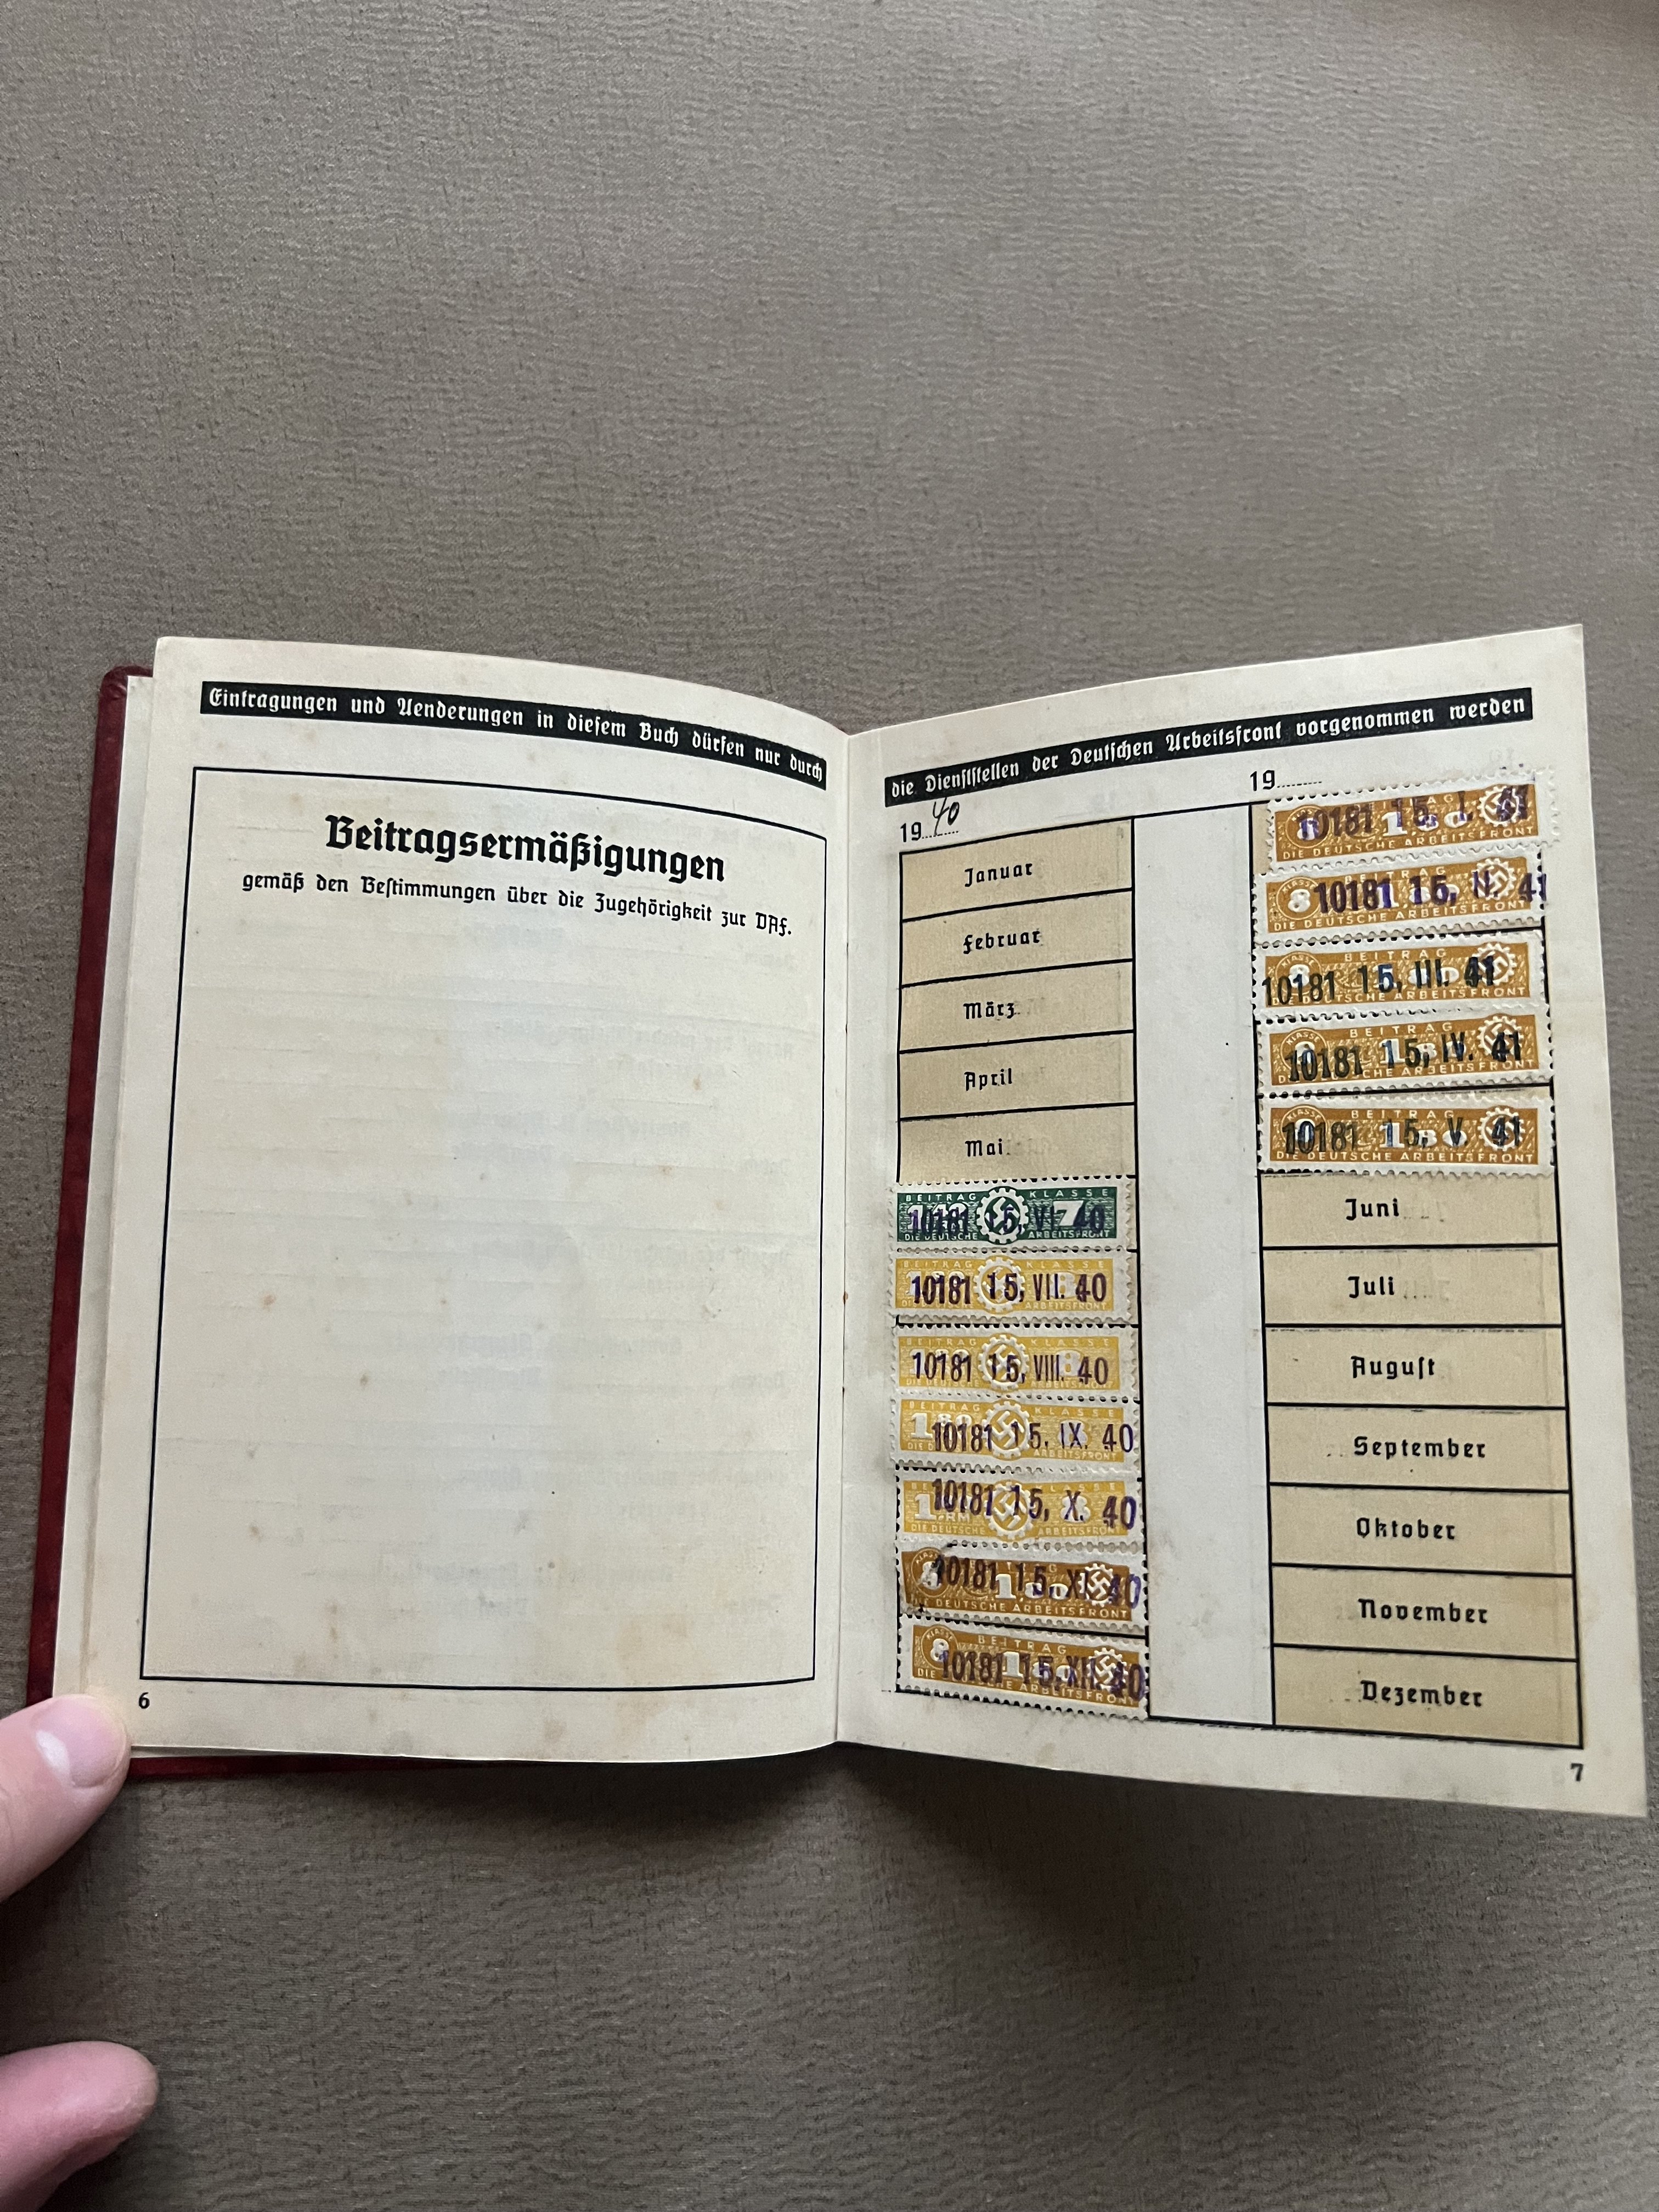 Eintragungen und Aenderungen in diesem Buch dürfen nur durch
Beitragsermäßigungen
gemäß den Bestimmungen über die Zugehörigkeit zur DAF.
6
die Dienststellen der Deutschen Arbeitsfront vorgenommen werden
1940
Januar
Februar
März
April
Mai
BEITRAG KLASSE
7
10181 15, VI. 40
DIE DEUTSCHE ARBEITSFRONT
BEITRAG KLASSE
10181 15, VII. 40
ARBEITSFRONT
BEITRAG KLASSE
10181 15, VIII. 40
BEITRAG KLASSE
10181 15. IX. 40
KLASSE
10181 15, X. 40
RM
DIE DEUTSCHE ARBEITSFRONT
8 180
10181 15, XI. 40
DEUTSCHE ARBEITSFRONT
KLASSE BEITRAG
8
10181 15. XII. 40
DIE ARBEITSFRONT
19
BEITRAG
8 180
10181 15, I. 41
DIE DEUTSCHE ARBEITSFRONT
KLASSE BEITRAG
8
10181 15, II. 41
DIE DEUTSCHE ARBEITSFRONT
BEITRAG
8
10181 15, III. 41
DEUTSCHE ARBEITSFRONT
KLASSE BEITRAG
10181 15, IV. 41
DIE DEUTSCHE ARBEITSFRONT
KLASSE BEITRAG
8 180
10181 15, V. 41
DIE DEUTSCHE ARBEITSFRONT
Juni
Juli
August
September
Oktober
November
Dezember
7